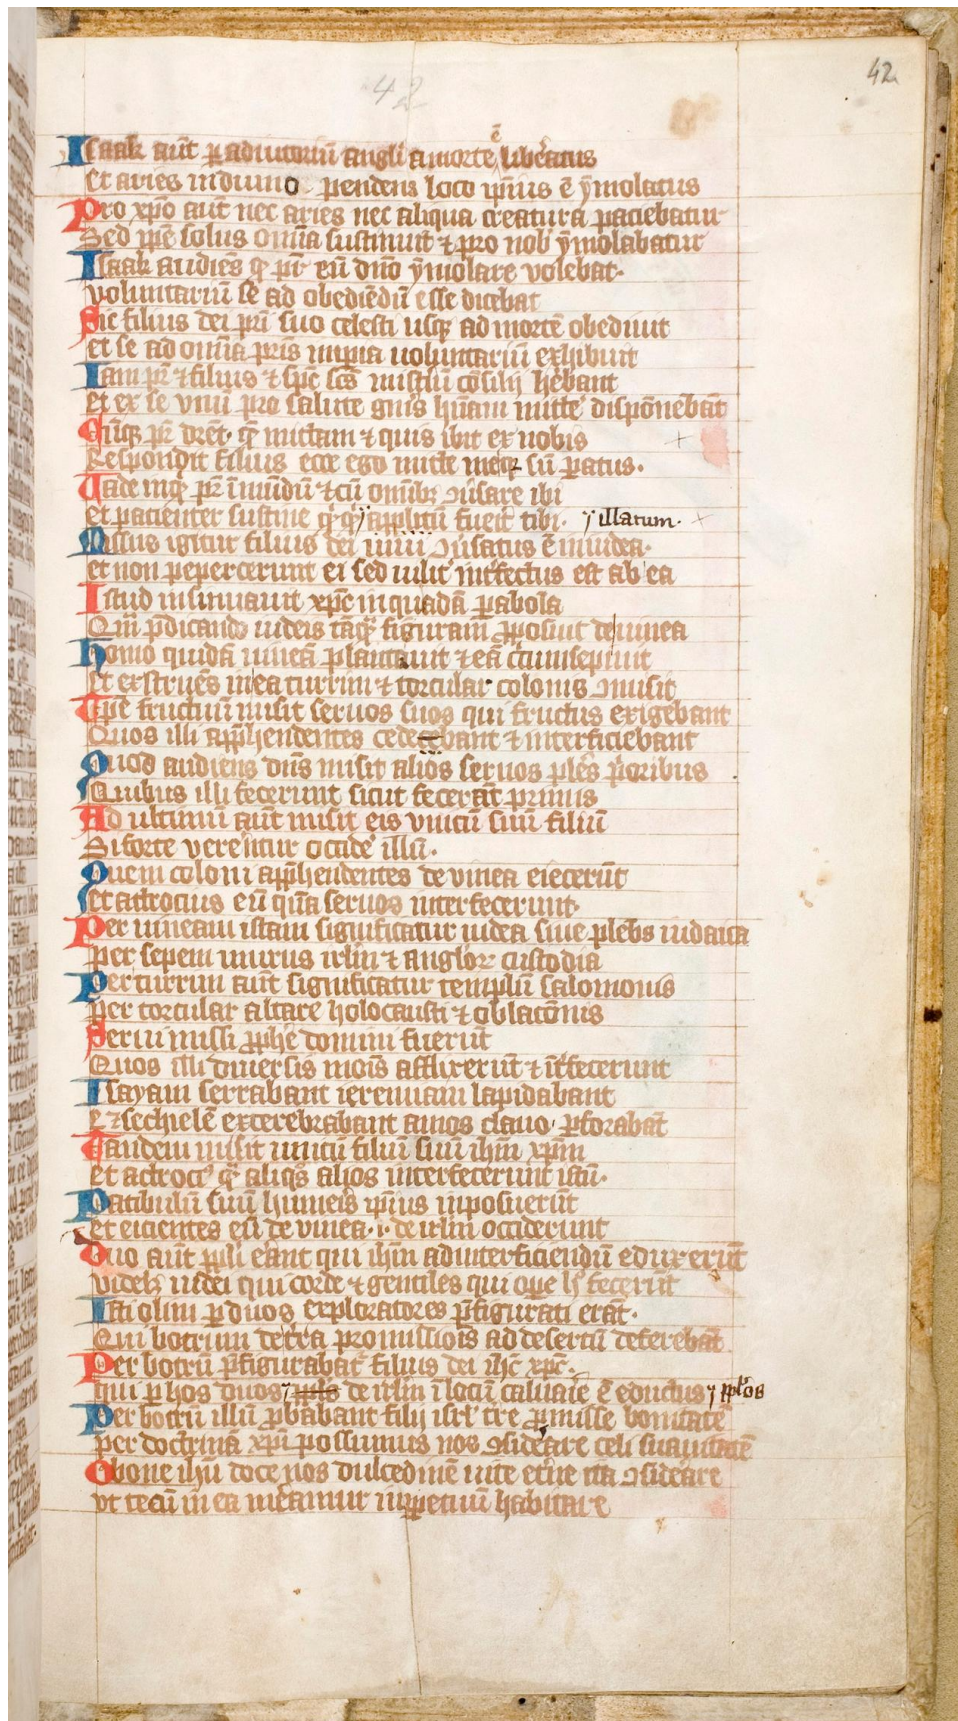 42
42
Isaak aūt ꝑ adiutoriū angli a morte ē lib̄eratus
Et aries in dumo pendens loco ip̄ius ē ẏmolatus
Pro xp̄o aūt nec aries nec aliqua creatura paciebatur
Sed ip̄e solus om̄ia sustinuit ⁊ pro nob̾ ẏmolabatur
Isaak audiēs ꝙ pr̄ eū dn̄o ẏmolare volebat·
voluntariū se ad obediēdū esse dicebat
Sic filius dei pr̄i suo celesti usqꝫ ad mortē obediuit
et se ad om̄ia pr̄is imꝑia uoluntariū exhibuit
Iam pr̄ ⁊ filius ⁊ sp̄c sc̄s mistiū cōsiliȷ hēbant
et ex se vnū pro salute gn̄is hūani mitte᷑ dispōnebāt
Cūqꝫ pr̄ dr̄et· quē mittam ⁊ quis ibit ex nobis
Respondit filius ecce ego mitte meqꝫ sū ꝑatus·
Uade inqͭ pr̄ ī mūdū ⁊ cū om̄ibꝫ ꝯūsare ibi
et pacienter sustine qͥcqͥd applitū fuerit tibi· illatum·
Missus igitur filius dei ꝯūsatus ē in iudea·
et non pepercerunt ei sed inlit᷑ int᷑fectus est ab ea
Istud insinuauit xp̄c in quadā ꝑabola
Quā p̄dicando iudeis tāqͣꝫ figuram ꝓposuit de vinea
Homo quidā vineā plantauit ⁊ eā circumsepiuit
Et exstruēs in ea turrim ⁊ torcular colonis ꝯmisit
Tp̄e fructuū misit seruos suos qui fructus exigebant
Quos illi app̄hendentes cedebant ⁊ interficiebant
Quod audiens dn̄s misit alios seruos ples p̄oribus
Quibus illi fecerunt sicut fecerāt primis
Ad ultimū aūt misit eis vnicū suū filiū
Si forte verentur occide᷑ illū·
Quem coloni app̄hendentes de vinea eiecerūt
Et atrocius eū qͣm seruos interfecerunt
Per uineam istam significatur iudea siue plebs iudaica
per sepem murus irl̄m ⁊ anglorꝫ custodia
Per turrim aūt significatur templū salomonis
per torcular altare holocausti ⁊ oblatōnis
Serui missi ꝓphe domini fuerūt
Quos illi diuersis mōis afflixerūt ⁊ īt᷑fecerunt
Isayam serrabant ieremiam lapidabant
Ezechielē excerebrabant amos clauo ꝑforabāt
Tandem misit unicū filiū suū ih̄m xp̄m
et actroci᷑ qͣ aliqͦs alios interfecerunt istū·
Patibulū suū humeris ip̄ius inposuerūt
et eicientes eū de vinea·i·de irl̄m occiderunt
Duo aūt ppl̄i erant qui ih̄m ad interficiendū eduxerūt
videlꝫ iudei qui corde ⁊ gentiles qui ope hͦ fecerūt
Isti olim ꝑ duos exploratores p̄figurati erāt·
Qui botrum de terra promissiōis ad desertū deferebāt
Per botrū p̄figurabat᷑ filius dei ih̄c xp̄c·
qui ꝑ hos duos de irl̄m ī locū caluarie ē eductus ppl̄os
Per botrū illū ꝓbabant filij isrl̄ tr̄e ꝓmisse bonitatē
per doctrinā xp̄i possumus nos ꝯsid̄are celi suauitatē
O bone ih̄u doce nos dulcedinē uite et̄ne ita ꝯsid̄are
vt tecū in ea mereamur in ꝑpetuū habitare